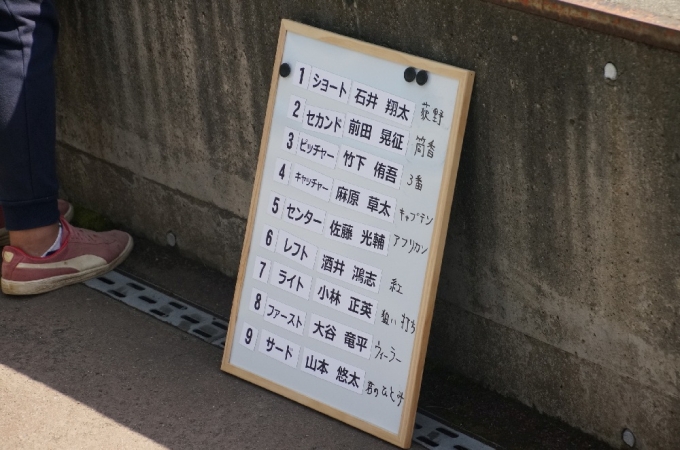 1 ショート 石井 翔太 荻野
2 セカンド 前田 晃征 筒香
3 ピッチャー 竹下 侑吾 3番
4 キャッチャー 麻原 草太 キャプテン
5 センター 佐藤 光輔 アフリカン
6 レフト 酒井 鴻志 紅
7 ライト 小林 正英 狙い打ち
8 ファースト 大谷 竜平 ウィーラー
9 サード 山本 悠太